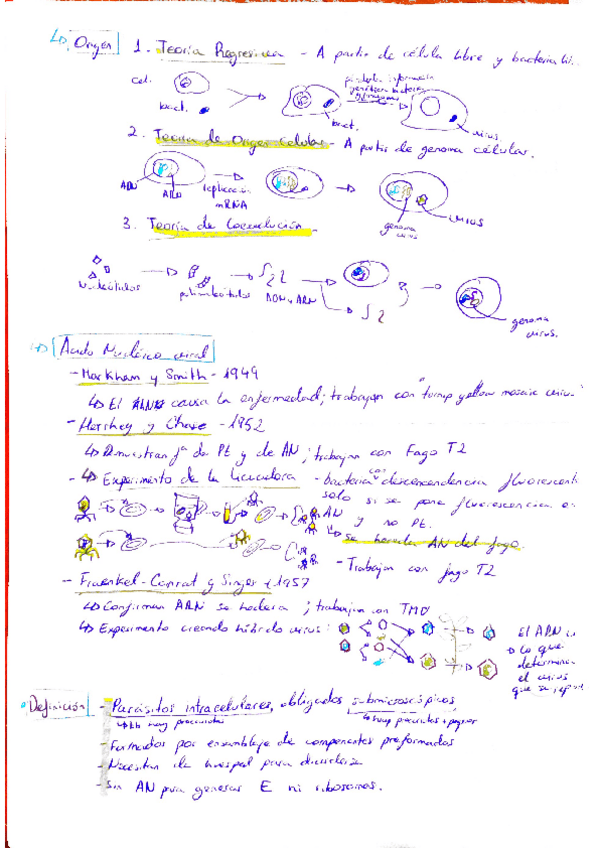 ↳ Origen 1. Teoría Regresiva - A partir de célula libre y bacteria
cel.
bact.
bact.
virus
2. Teoría de Origen Celular - A partir de genoma célular.
ADN
ARN
replicación
mRNA
genoma
virus
virus
3. Teoría de Coevolución.
nucleótidos
polinucleótidos
ADN y ARN
genoma
virus.
↳ Ácido Nucleico viral
- Markham y Smith - 1949
↳ El ARN causa la enfermedad; trabajan con "turnip yellow mosaic virus"
- Hershey y Chase - 1952
↳ Demuestran fª de Pt y de AN; trabajan con Fago T2
- ↳ Experimento de la licuadora - bacteria con descendencia fluorescente
solo si se pone fluorescencia en
AN y no Pt.
↳ se hereda AN del fago
- Trabajan con fago T2
- Fraenkel-Conrat y Singer - 1957
↳ Confirman ARN se hereda; trabajan con TMV
↳ Experimento creando híbrido virus:
El ARN es
lo que
determina
el virus
que se
Definición - Parásitos intracelulares, obligados submicroscópicos,
↳ muy pequeños
- Formados por ensamblaje de componentes preformados
- Necesitan de huésped para
- Sin AN para generar E ni ribosomas.